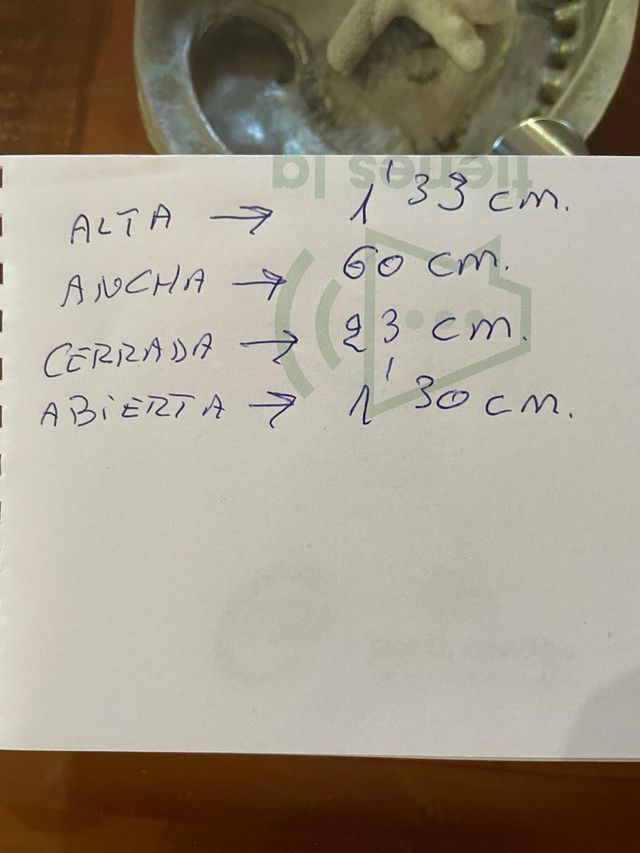 tienes la
ALTA → 1'33 cm.
ANCHA → 60 cm.
CERRADA → 23 cm.
ABIERTA → 1'30 cm.